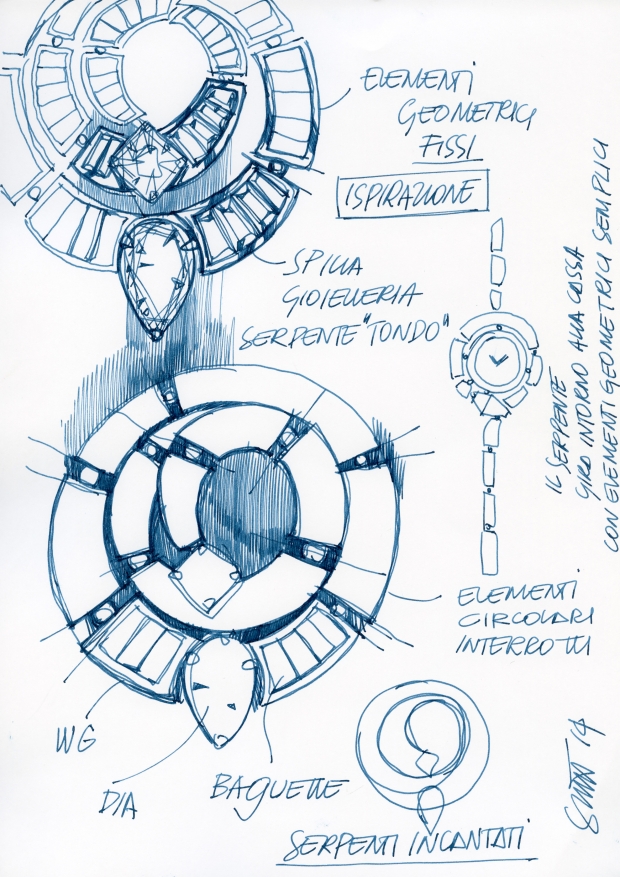 ELEMENTI
GEOMETRICI
FISSI
ISPIRAZIONE
SPILLA
GIOIELLERIA
SERPENTE "TONDO"
IL SERPENTE
GIRO INTORNO ALLA CASSA
CON ELEMENTI GEOMETRICI SEMPLICI
ELEMENTI
CIRCOLARI
INTERROTTI
WG
DIA
BAGUETTE
SERPENTI INCANTATI
14